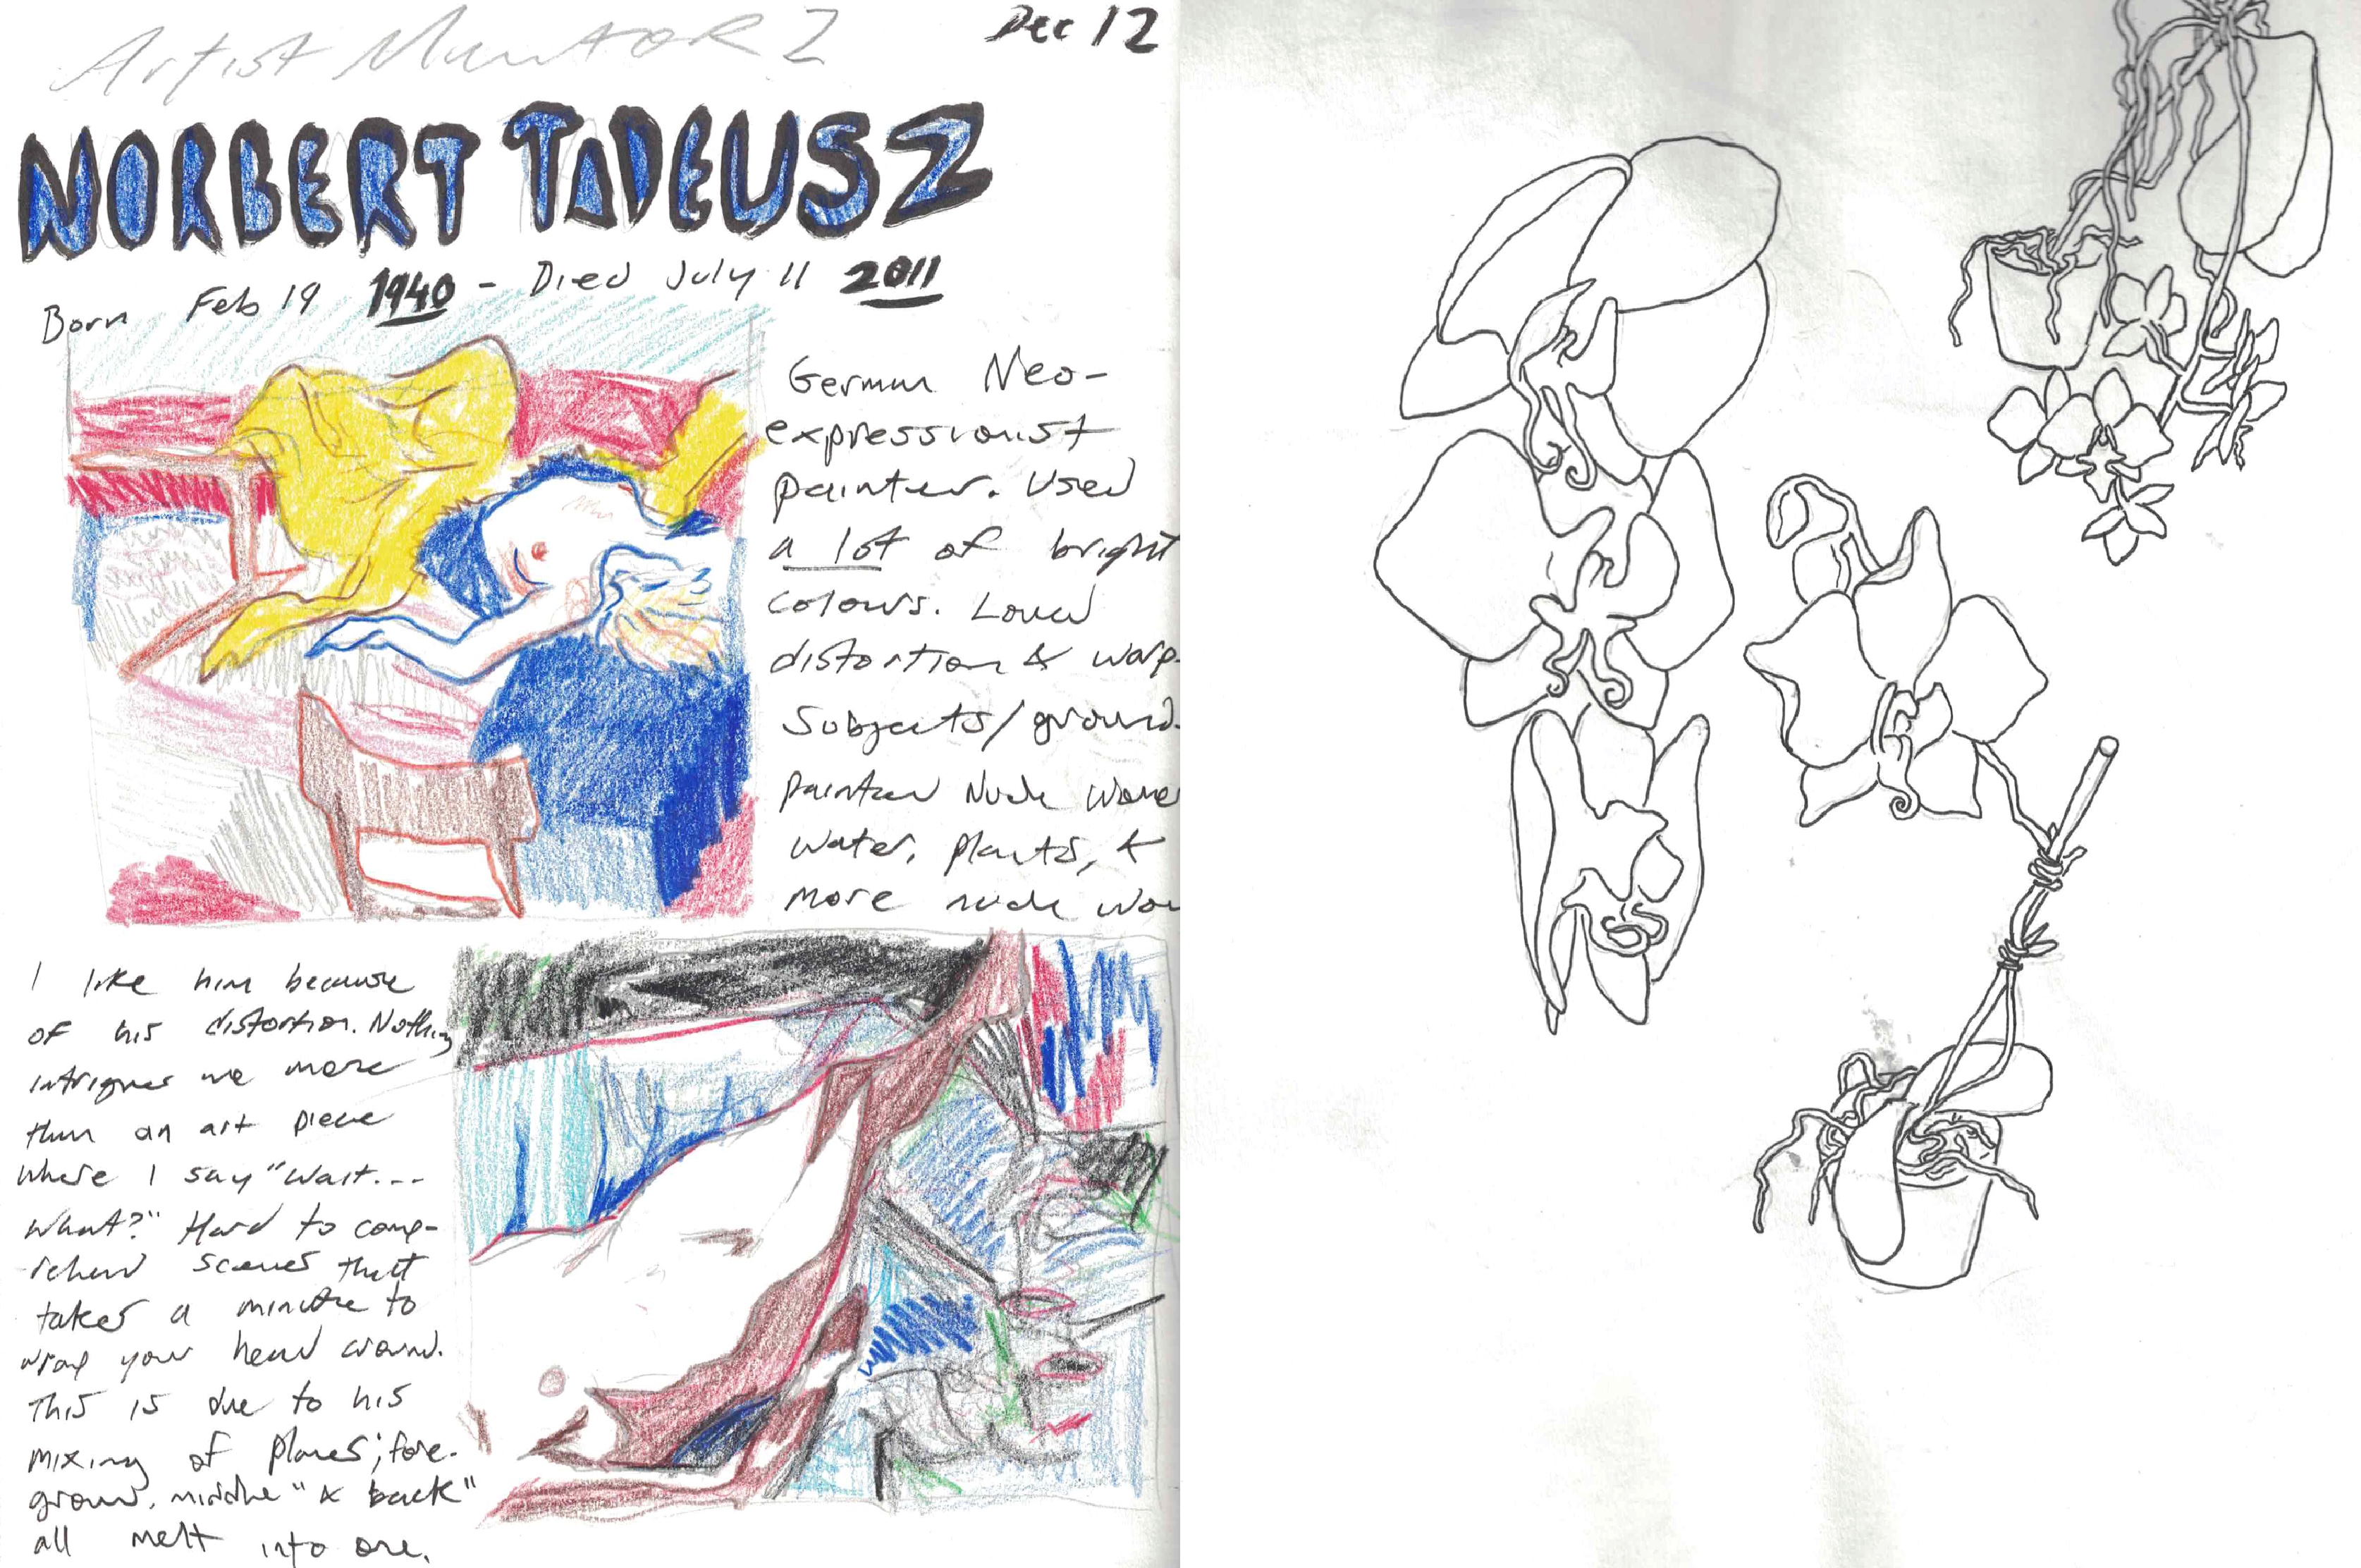 Artist Mentor 2
Dec 12
NORBERT TADEUSZ
Born Feb 19 1940 - Died July 11 2011
German Neo-
expressionist
painter. Used
a lot of bright
colours. Loved
distortion & warp
subjects/ground.
painted Nude Wome
water, plants, &
more nude wom
I like him because
of his distortion. Nothing
intrigues me more
than an art piece
where I say "Wait...
what?" Hard to comp-
rehend scenes that
takes a minute to
wrap your head around.
This is due to his
mixing of planes; fore-
ground, middle " & back"
all melt into one.